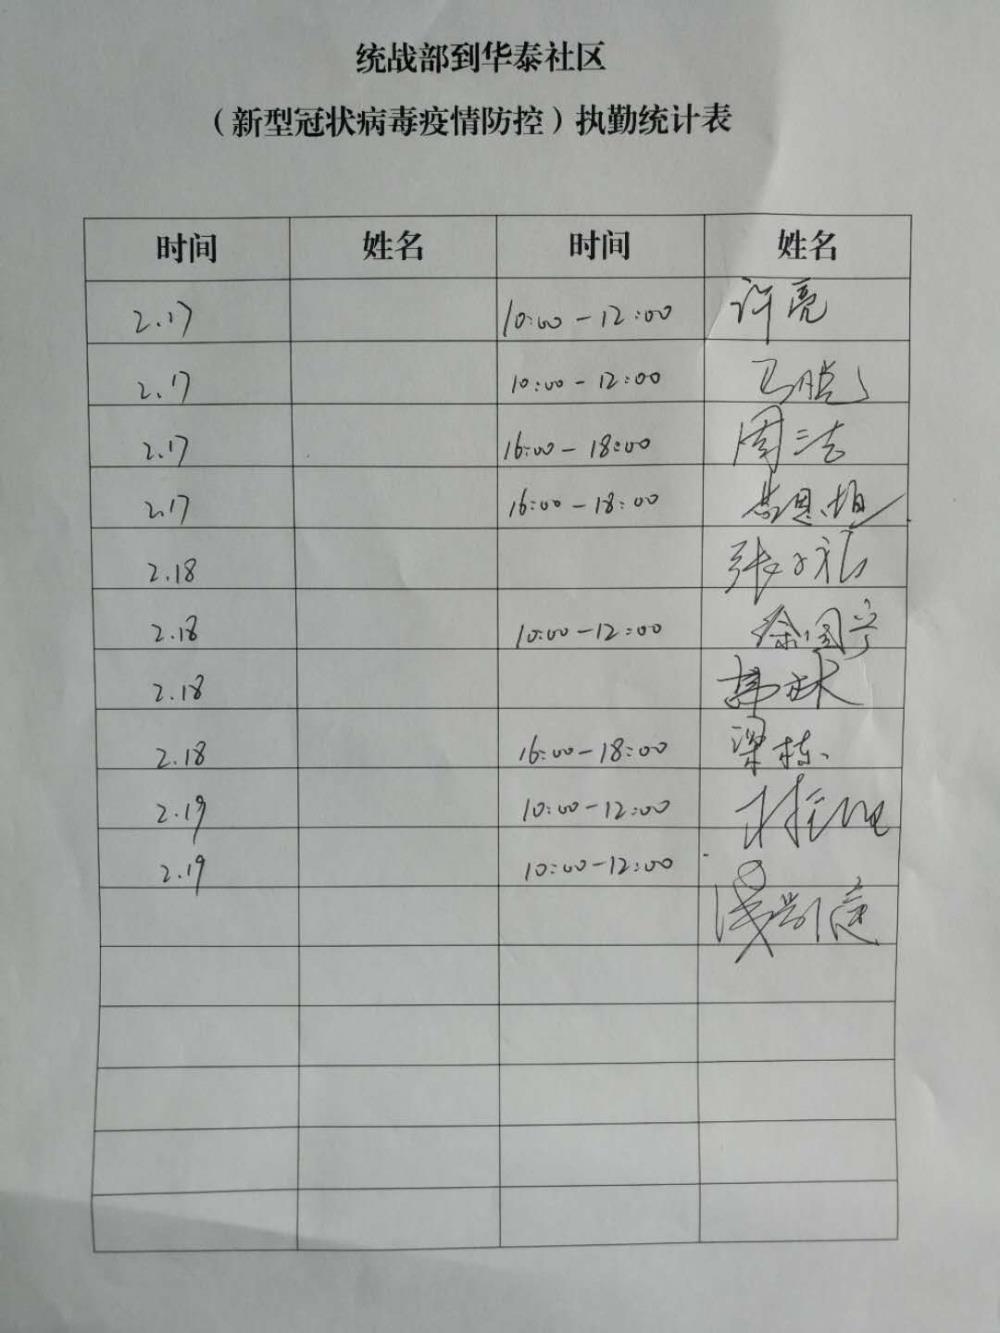 统战部到华泰社区
（新型冠状病毒疫情防控）执勤统计表
时间 姓名 时间 姓名
2.17 10:00-12:00 许亮
2.17 10:00-12:00 马腾
2.17 16:00-18:00 周三法
2.17 16:00-18:00
2.18
2.18 10:00-12:00 徐国宁
2.18
2.18 16:00-18:00 梁栋
2.19 10:00-12:00
2.19 10:00-12:00